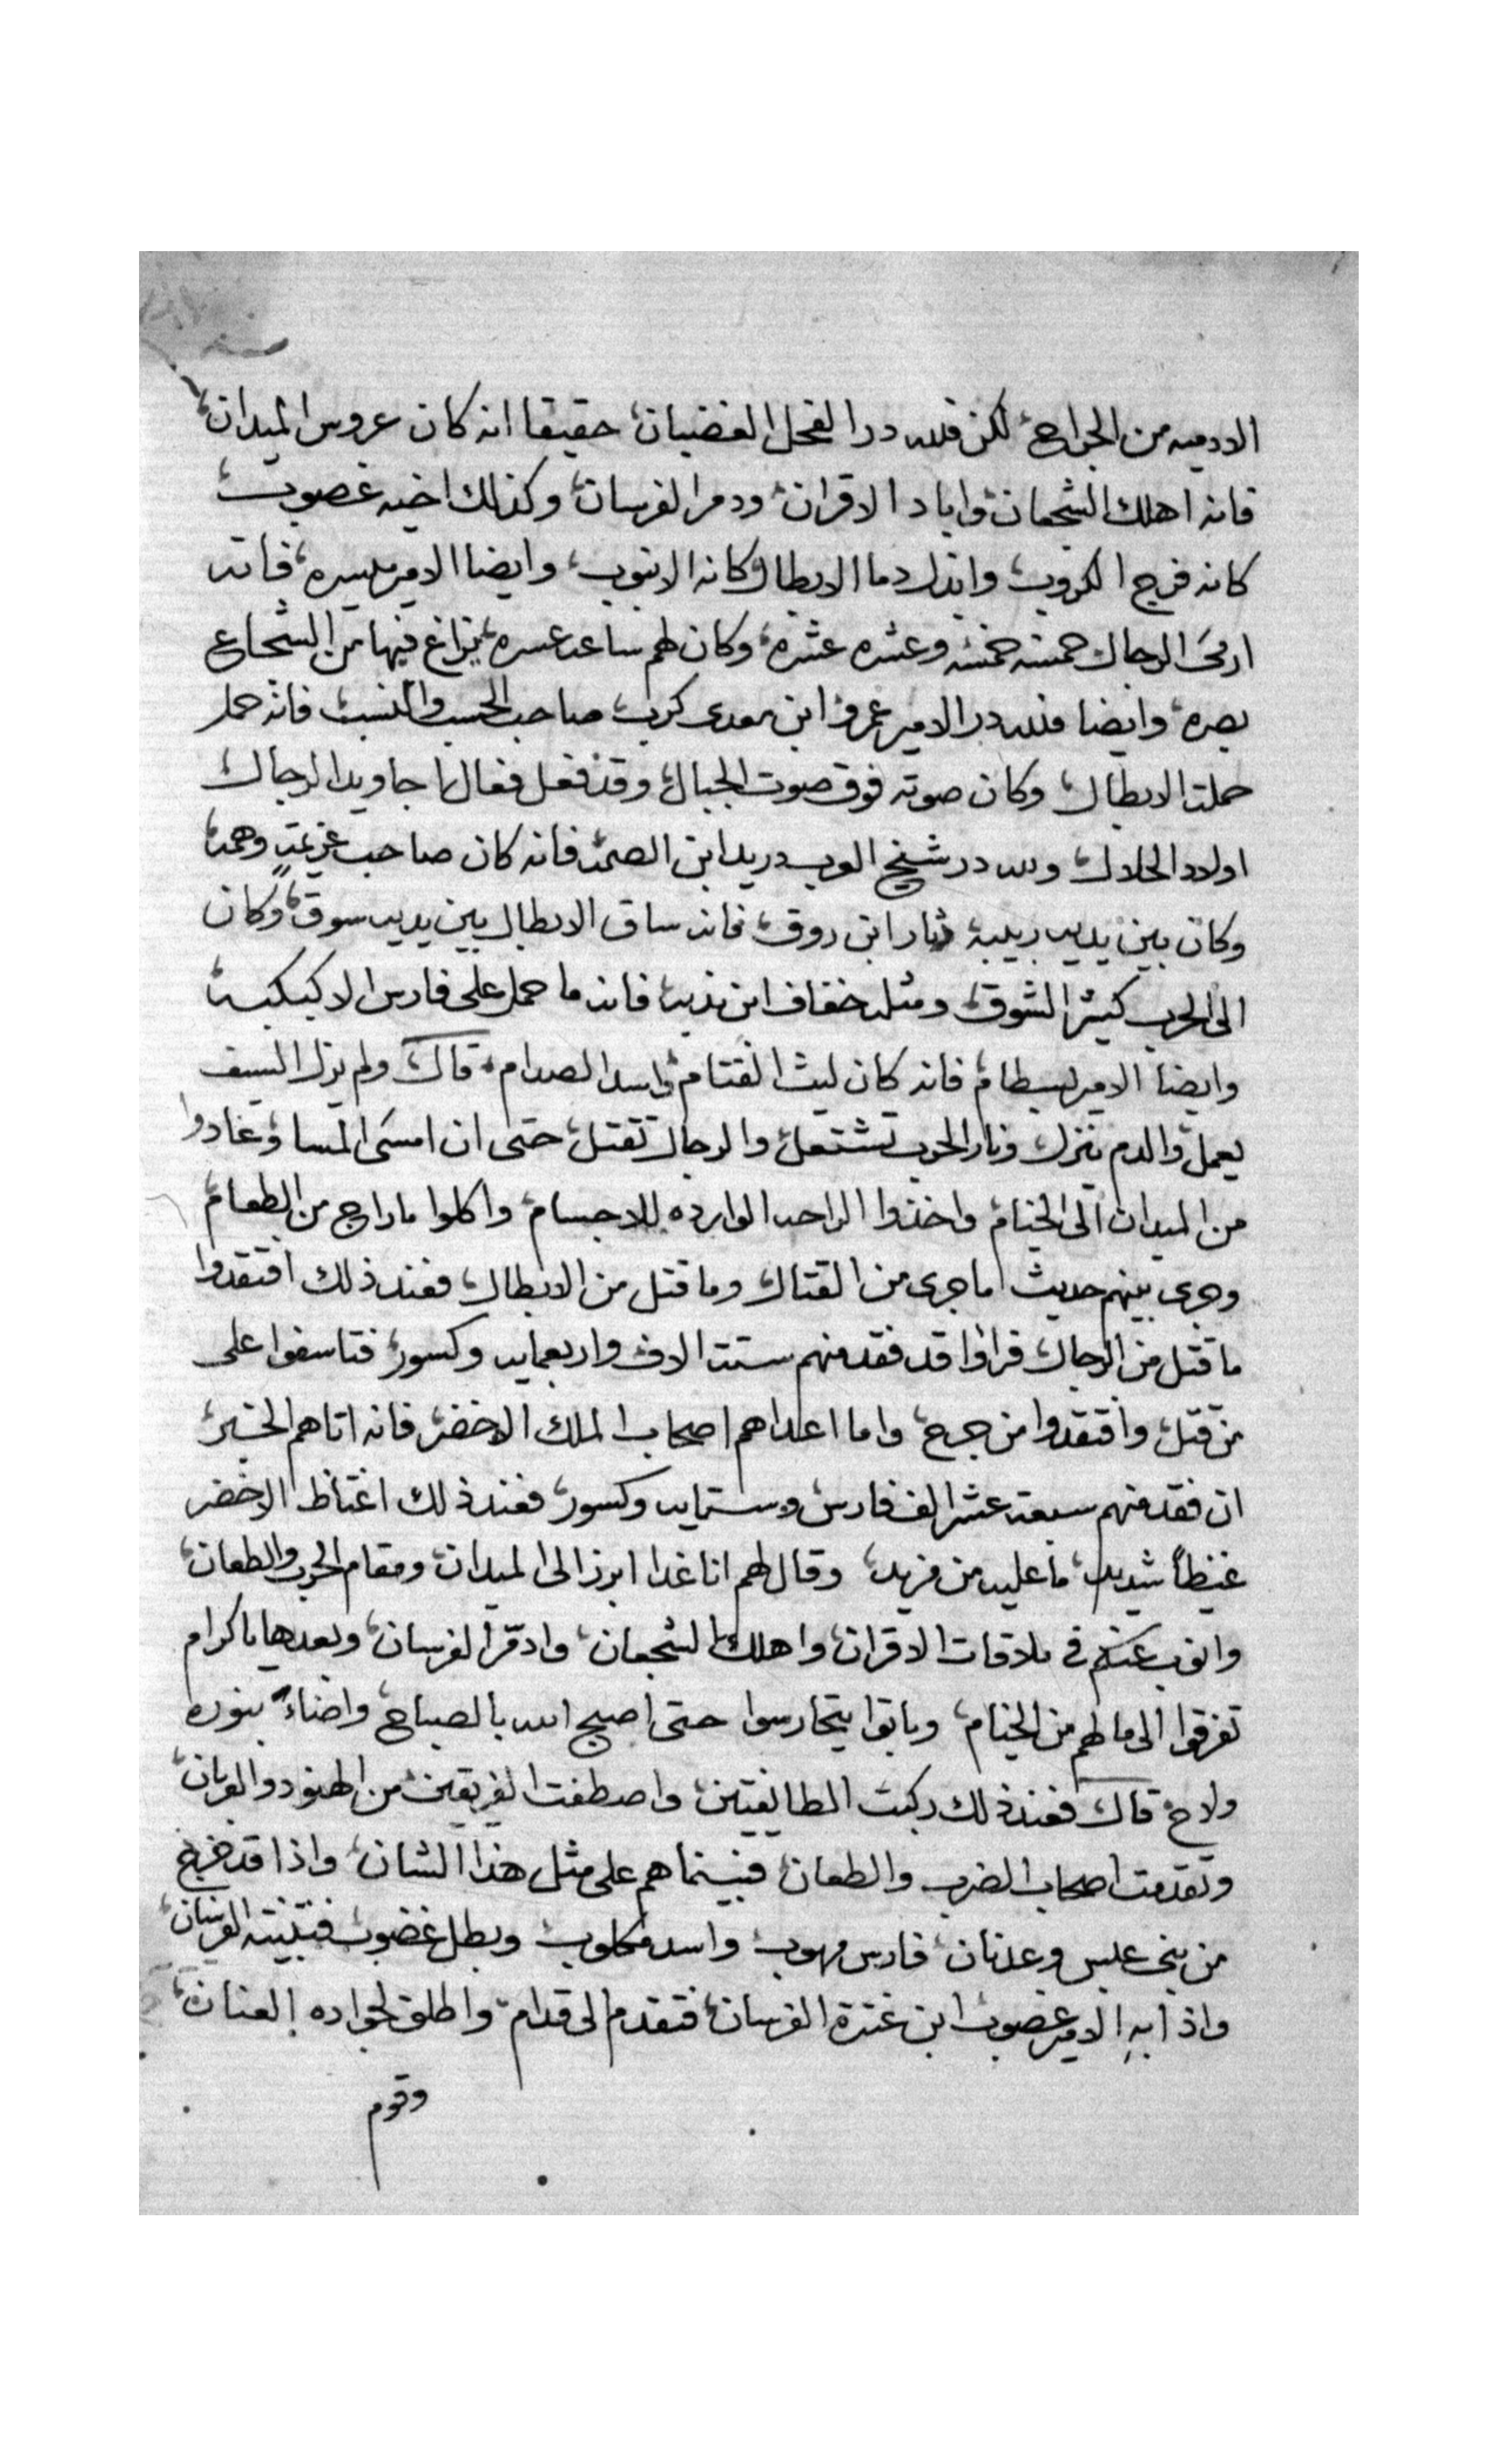 الادميه من الجراح لكن فلله در الفحل الغضبان حقيقا انه كان عروس الميدان
فانه اهلك الشجعان واباد الاقران ودمر الفرسان وكذلك اخيه غصوب
كانه فرج الكروب وانزل دما الابطال كانه الانبوب وايضا الامير ميسره فانه
ارمى الرجال خمسه خمسه وعشره عشره وكان لهم ساعه عسره يزاغ فيها من الشجاع
بصره وايضا فلله در الامير عمرو ابن معدى كرب صاحب الحسب والنسب فانه حمل
حملت الابطال وكان صوته فوق صوت الجبال وقد فعل فعال الرجال
اولاد الحلال ولله در شيخ العرب دريد ابن الصمه فانه كان صاحب عزيمةٍ وهمه
وكان بين يديه ربيبه ابن روق فانه ساق الابطال بين يديه سوق وكان
الى الحرب كثير الشوق ومثله خفاف ابن ندبه فانه ما حمل على فارس الا كبكبه
وايضا الامير بسطام فانه كان ليث القتام واسد الصدام قال ولم يزل السيف
يعمل والدم ينزل ونار الحرب تشتعل والرجال تقتل حتى ان امسى المسا وعادوا
من الميدان الى الخيام واخذوا الراحه الوارده للاجسام واكلوا ما راج من الطعام
وجرى بينهم حديث اما جرى من القتال وما قتل من الابطال فعند ذلك افتقدوا
ما قتل من الرجال فراوا قد فقد منهم ستت الاف واربعمايه وكسور فتاسفوا على
من قتل وافتقدوا من جرح واما اعداهم اصحاب الملك الاخضر فانه اتاهم الخبر
ان فقد منهم سبعه عشر الف فارس وستمايه وكسور فعند ذلك اغتاظ الاخضر
غيظاً شديد ما عليه من مزيد وقال لهم انا غدا ابرز الى الميدان ومقام الحرب والطعان
وانوب عنكم في ملاقات الاقران واهلك الشجعان وادمر الفرسان وبعدها يا كرام
تفرقوا الى ما لهم من الخيام وباتوا يتحارسوا حتى اصبح الله بالصباح واضاء بنوره
ولاح قال فعند ذلك ركبت الطايفتين واصطفت الفريقين من الهنود والعربان
وتقدمت اصحاب الضرب والطعان فبينما هم على مثل هذا الشان واذا قد خرج
من بنى عبس وعدنان فارس مهوب واسد مكلوب وبطل غضوب فتبينته الفرسان
واذا بهِ الامير غصوب ابن عنترة الفرسان فتقدم الى قدام واطلق لجواده العنان
وقوم